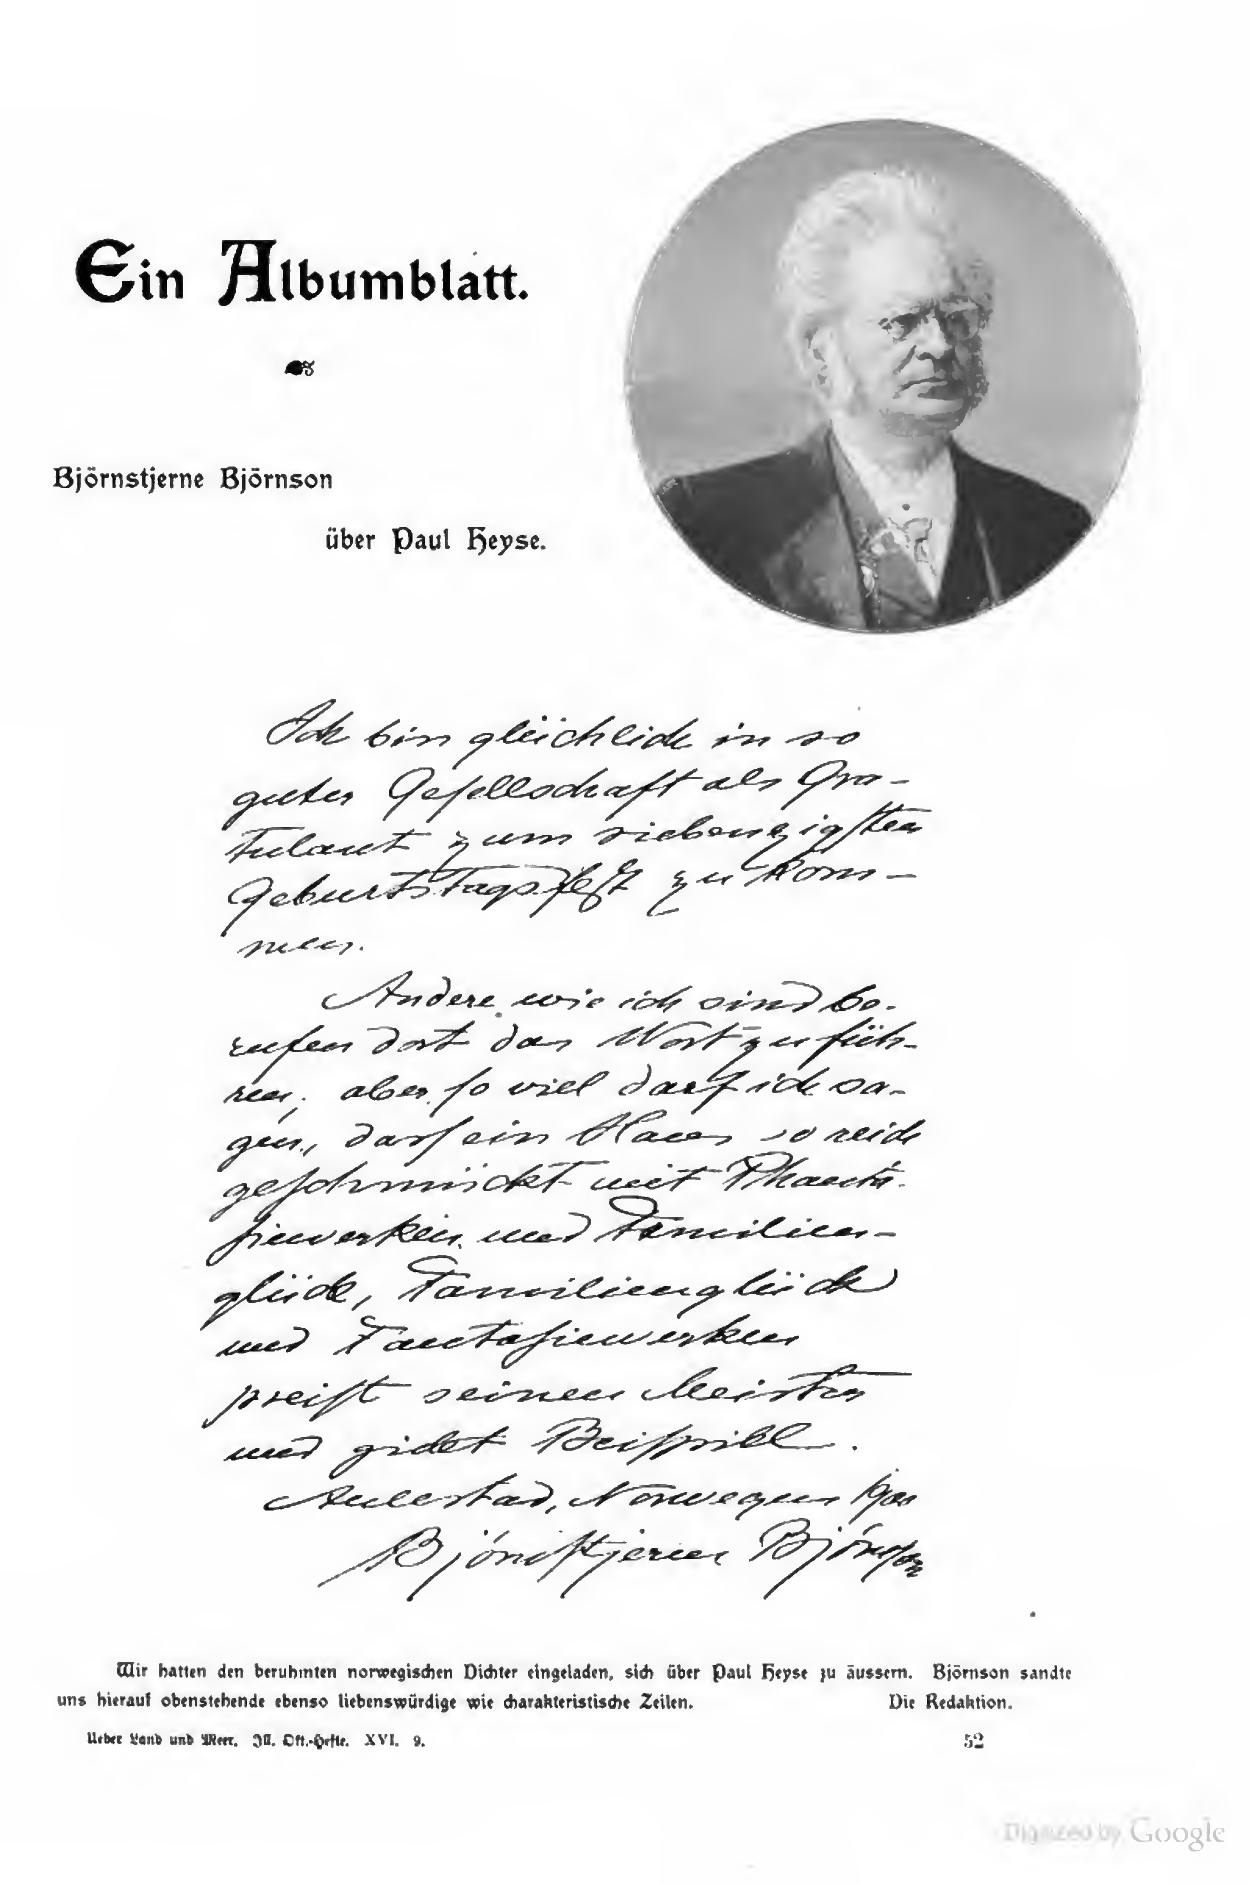 Ein Albumblatt.
Björnstjerne Björnson
über Paul Heyse.
Ich bin glücklich in so
guter Gesellschaft als Gra-
tulant zum siebenzigsten
Geburtstagsfest zu kom-
men.
Andere wie ich sind be-
rufen dort das Wort zu füh-
ren; aber so viel darf ich sa-
gen, dass ein Haus so reich
geschmückt mit Phanta-
siewerken und Familien-
glück, Familienglück
und Fantasiewerken
preist seinen Meister
und gibt Beispiel.
Aulestad, Norwegen 1900
Björnstjerne Björnson
Wir hatten den berühmten norwegischen Dichter eingeladen, sich über Paul Heyse zu äussern. Björnson sandte
uns hierauf obenstehende ebenso liebenswürdige wie charakteristische Zeilen. Die Redaktion.
Ueber Land und Meer. Ill. Okt.-Hefte. XVI. 9. 52
Digitized by Google